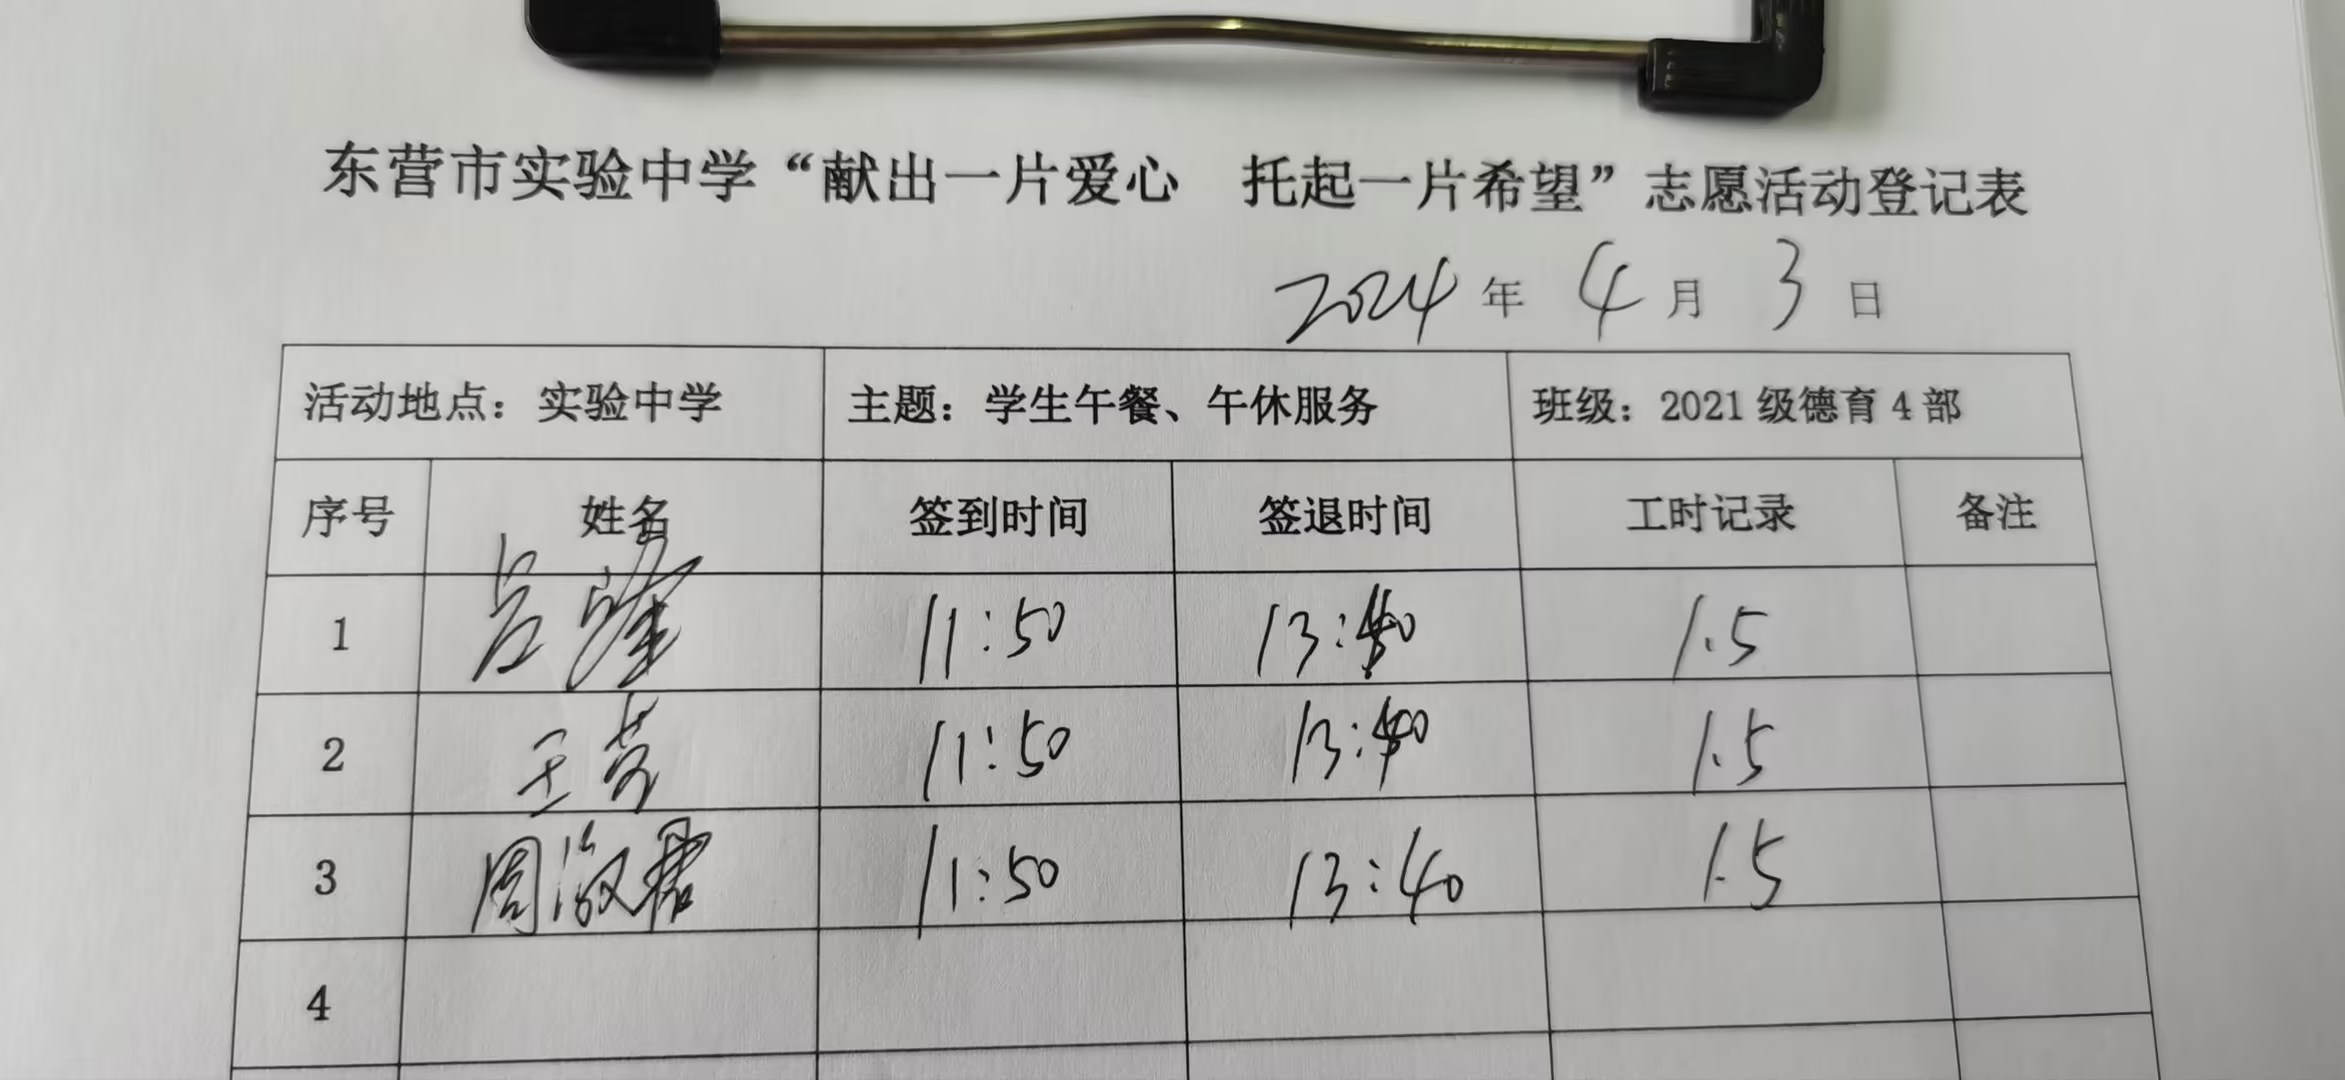 东营市实验中学“献出一片爱心 托起一片希望”志愿活动登记表
2024 年 4 月 3 日
活动地点：实验中学 主题：学生午餐、午休服务 班级：2021 级德育 4 部
序号 姓名 签到时间 签退时间 工时记录 备注
1 吕 11:50 13:40 1.5
2 王 11:50 13:40 1.5
3 周淑君 11:50 13:40 1.5
4